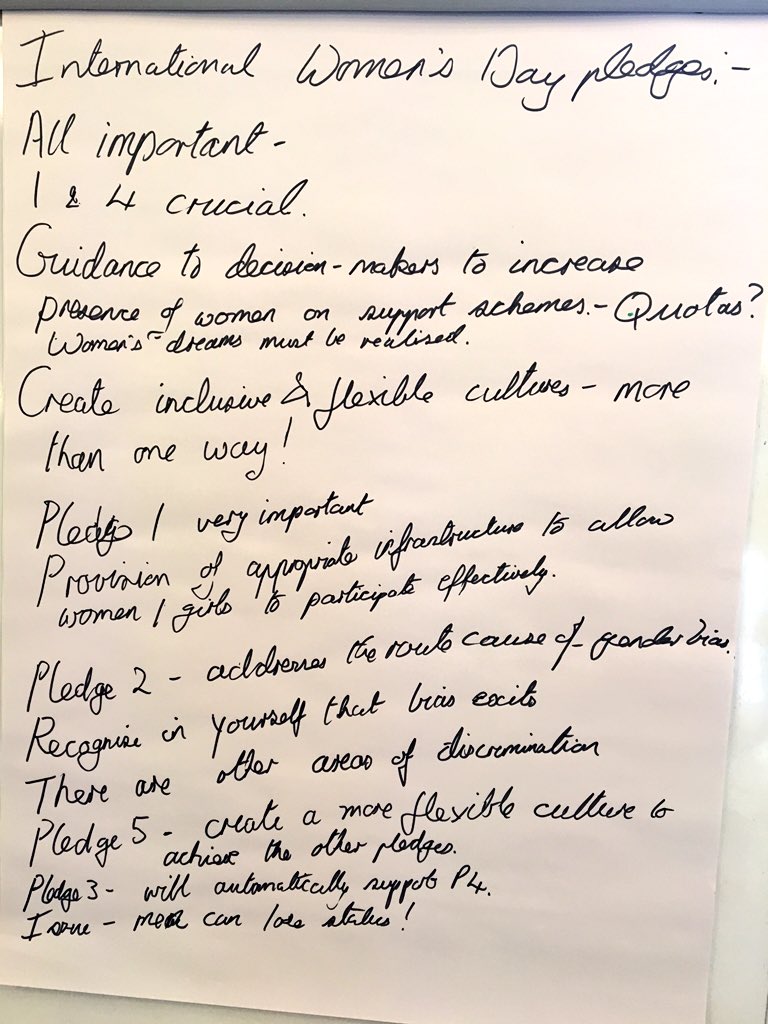 International Women's Day pledges:-
All important -
1 & 4 crucial.
Guidance to decision-makers to increase
presence of women on support schemes. - Quotas?
Women's dreams must be realised.
Create inclusive & flexible cultures - more
than one way!
Pledge 1 very important
Provision of appropriate infrastructure to allow
women / girls to participate effectively.
Pledge 2 - addresses the route cause of gender bias.
Recognise in yourself that bias exits
There are other areas of discrimination
Pledge 5 - create a more flexible culture to
achieve the other pledges.
Pledge 3 - will automatically support P4.
Issue - men can lose status!